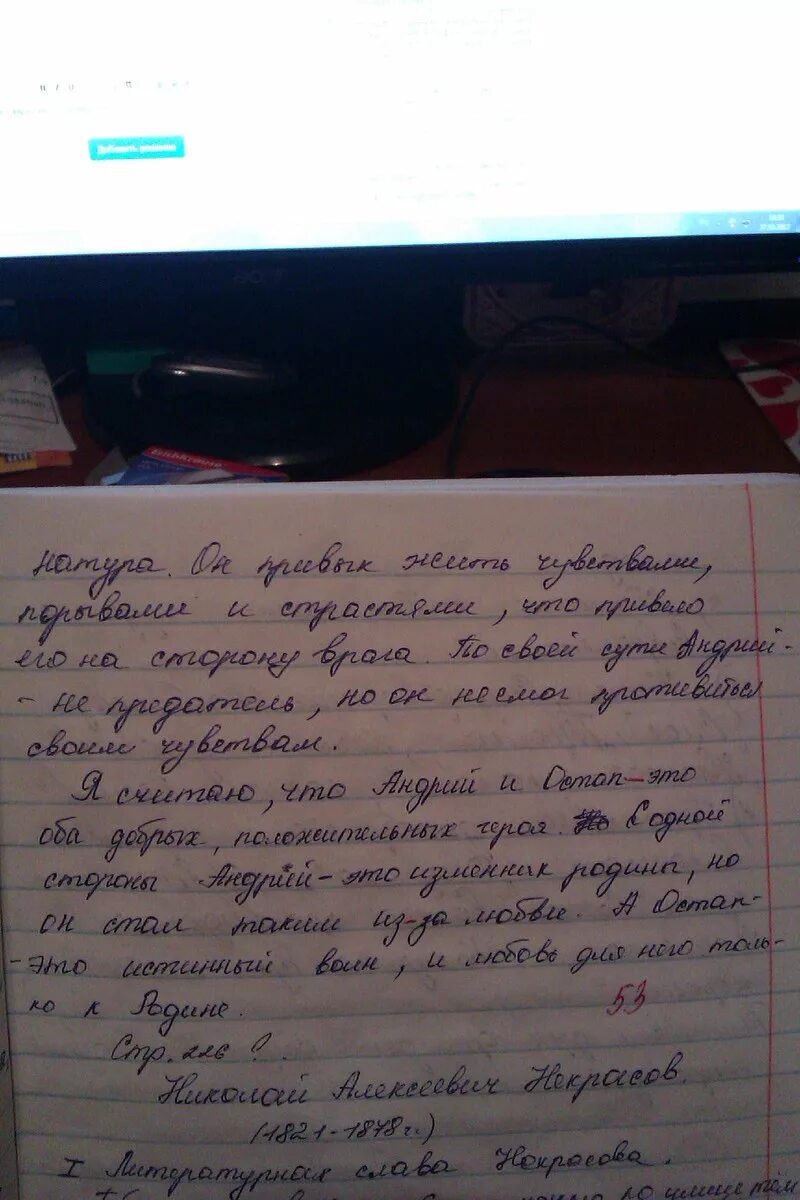 Добавить решение
acer
ErichKrause
натура. Он привык жить чувствами,
порывами и страстями, что привело
его на сторону врага. По своей сути Андрий-
- не предатель, но он несмог противиться
своим чувствам.
Я считаю, что Андрий и Остап-это
оба добрых, положительных героя. С одной
стороны Андрий-это изменник родины, но
он стал таким из-за любви. А Остап-
-это истинный воин, и любовь для него толь-
ко к Родине.
53
Стр. 226 ?.
Николай Алексеевич Некрасов.
(1821-1878г.)
I Литературная слава Некрасова.